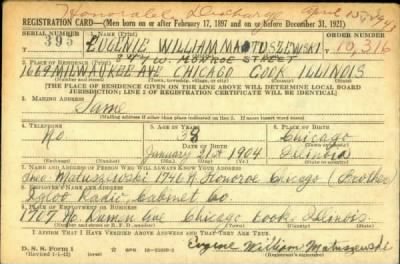 Honorable Discharge April 15, 1943
REGISTRATION CARD—(Men born on or after February 17, 1897 and on or before December 31, 1921)
SERIAL NUMBER 395
1. NAME (Print)
EUGENIE WILLIAM MATUSZEWSKI
ORDER NUMBER 10,316
W. MONROE STREET
1669 MILWAUKEE AVE CHICAGO COOK ILLINOIS
[THE PLACE OF RESIDENCE GIVEN ON THE LINE ABOVE WILL DETERMINE LOCAL BOARD
JURISDICTION; LINE 2 OF REGISTRATION CERTIFICATE WILL BE IDENTICAL]
3. MAILING ADDRESS
Same
[Mailing address if other than place indicated on line 2. If same insert word same]
4. TELEPHONE
No
(Exchange) (Number)
5. AGE IN YEARS
38
DATE OF BIRTH
January 31st 1904
(Mo.) (Day) (Yr.)
6. PLACE OF BIRTH
Chicago
(Town or county)
Illinois
(State or country)
7. NAME AND ADDRESS OF PERSON WHO WILL ALWAYS KNOW YOUR ADDRESS
Matuszewski 1746 N Honoroe Chicago (Brother)
8. EMPLOYER'S NAME AND ADDRESS
Radio Cabinet Co
9. PLACE OF EMPLOYMENT OR BUSINESS
1707 No. Damen Ave Chicago Cook Illinois
I AFFIRM THAT I HAVE VERIFIED ABOVE ANSWERS AND THAT THEY ARE TRUE.
D. S. S. Form 1
(Revised 1-1-42) (over)
Eugene William Matuszewski